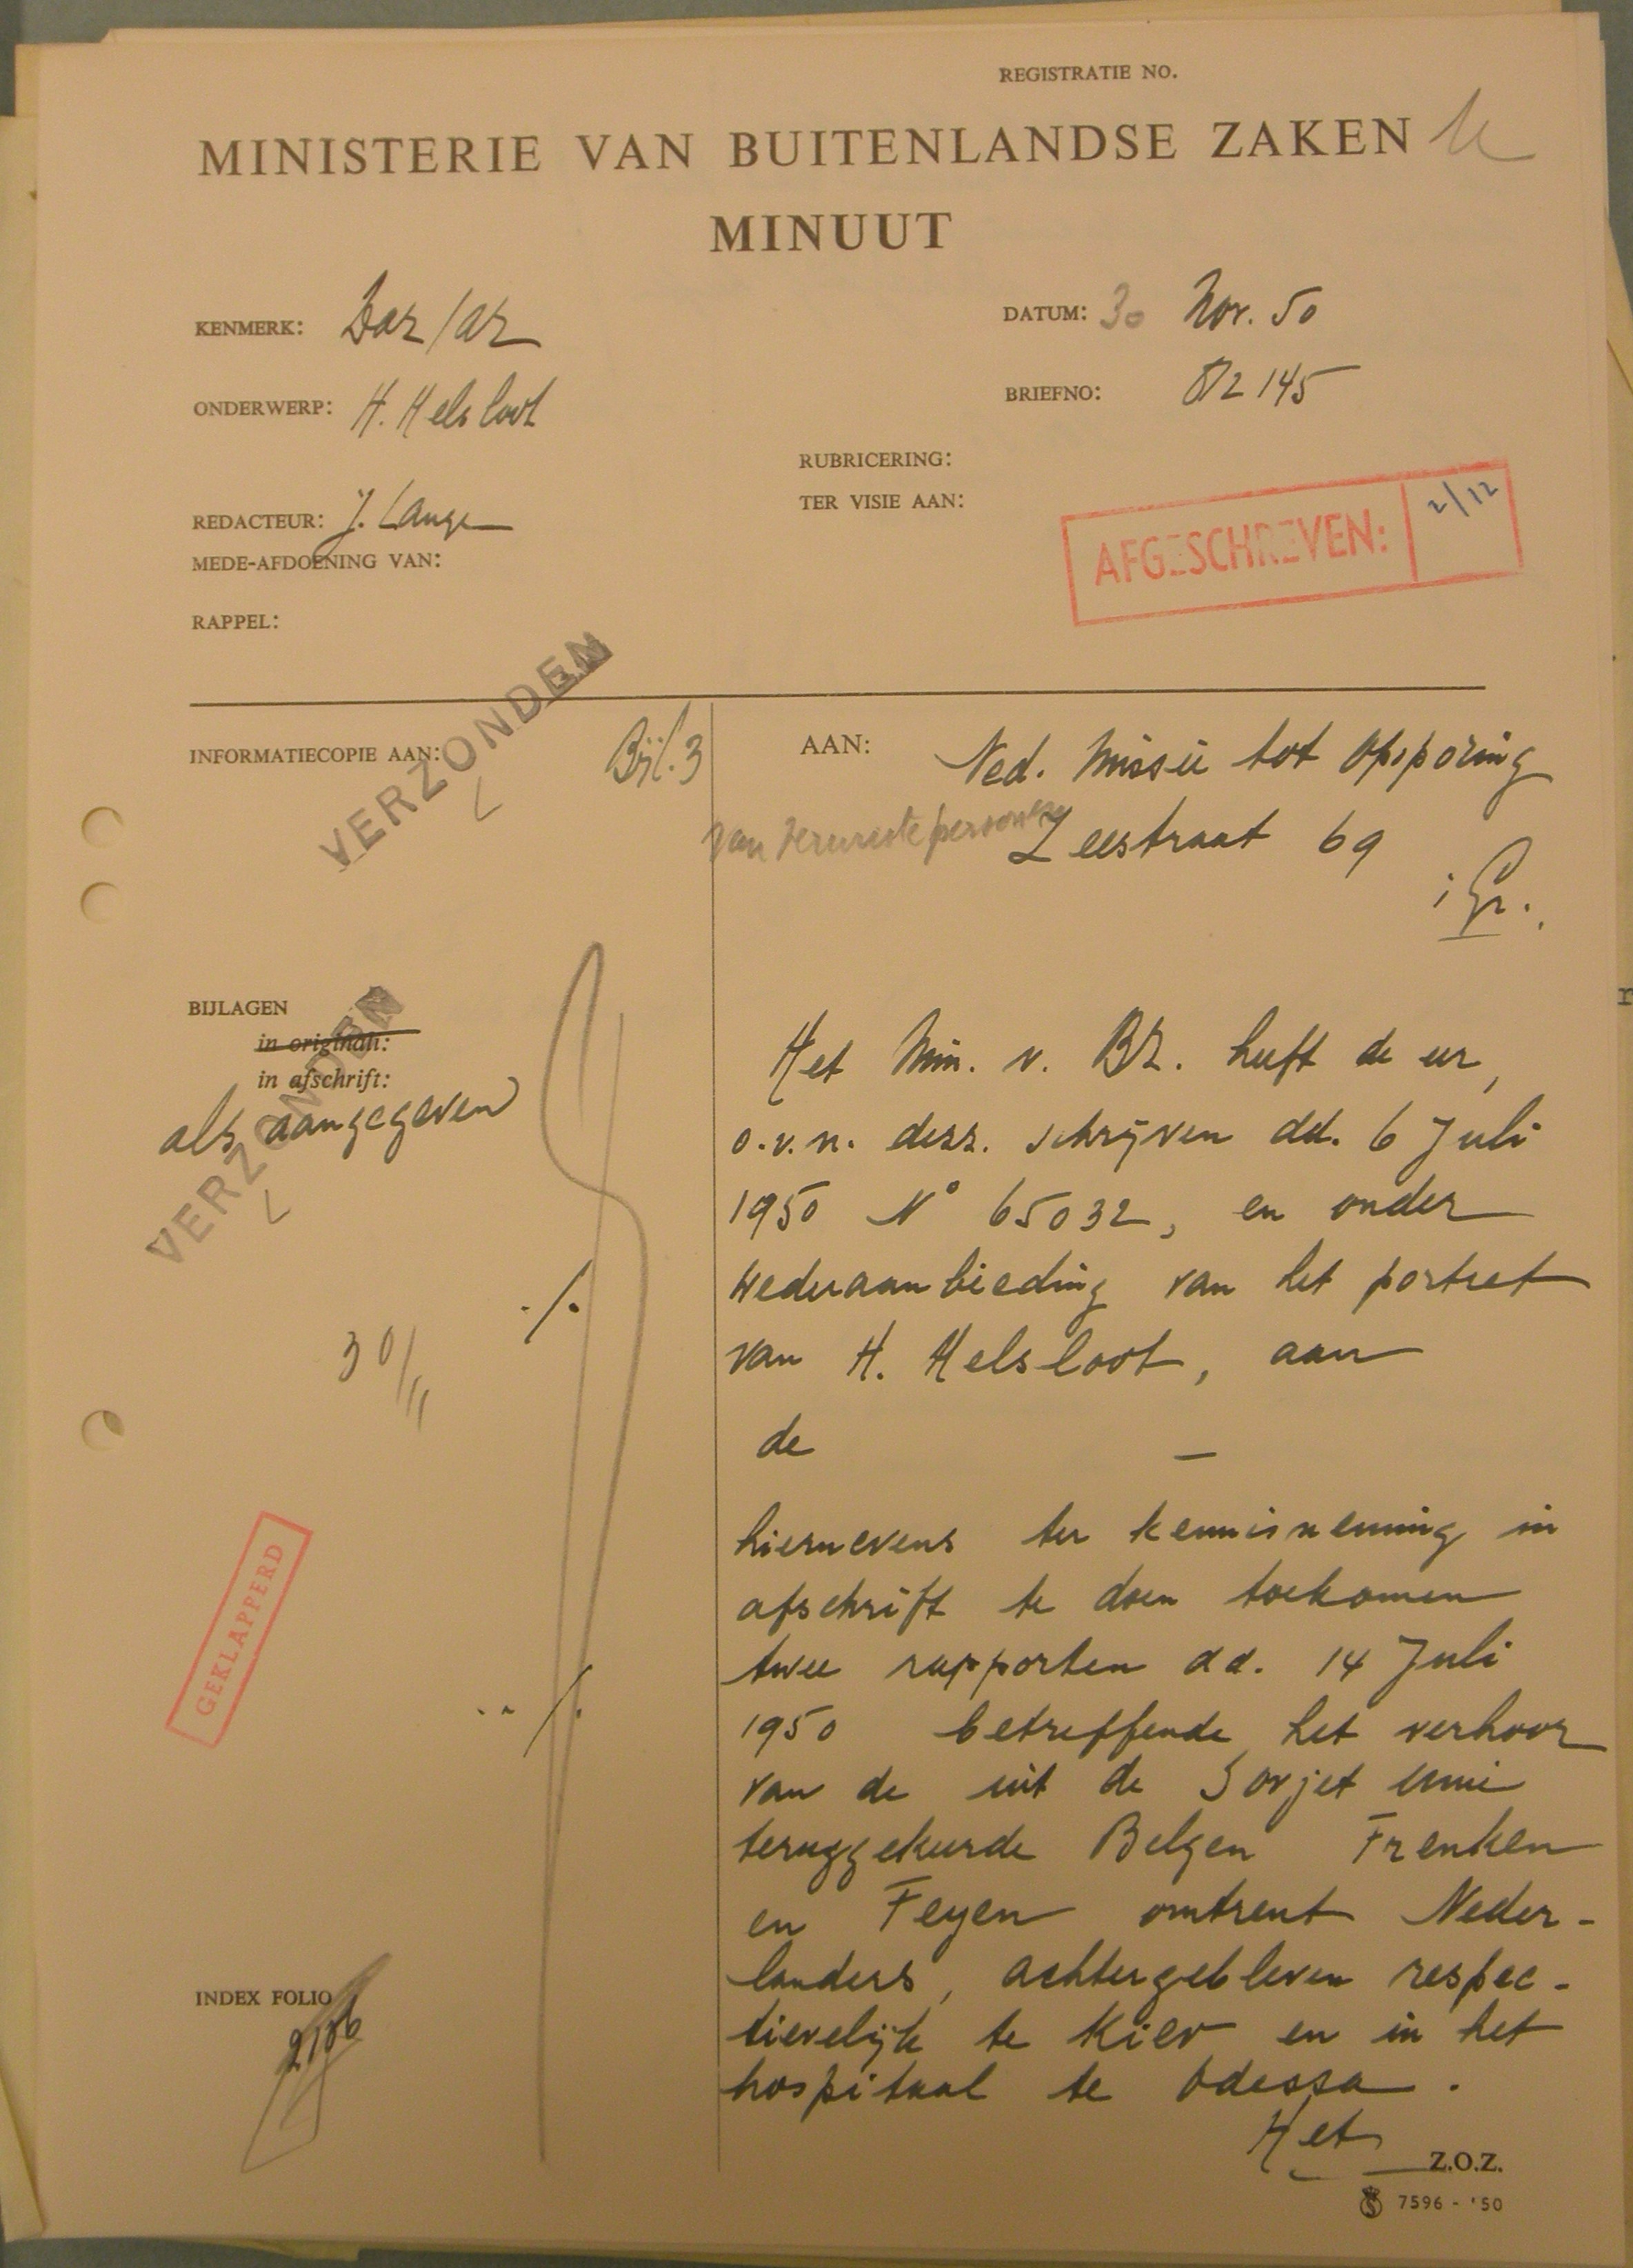 REGISTRATIE NO.
MINISTERIE VAN BUITENLANDSE ZAKEN
MINUUT
KENMERK: Daz/az
DATUM: 30 Nov. 50
ONDERWERP: H. Helsloot
BRIEFNO: 145
RUBRICERING:
TER VISIE AAN:
REDACTEUR: J. Lange
MEDE-AFDOENING VAN:
AFGESCHREVEN: 2/12
RAPPEL:
VERZONDEN
INFORMATIECOPIE AAN:
Bijl. 3
AAN: Ned. Missie tot Opsporing
van Vermiste personen
Zeestraat 69
BIJLAGEN
in originali:
in afschrift:
als aangegeven
VERZONDEN
30/11
GEKLAPPERD
INDEX FOLIO
2106
Het Min. v. BZ. heeft de eer,
o.v.n. desz. schrijven dd. 6 Juli
1950 N° 65032, en onder
wederaanbieding van het portret
van H. Helsloot, aan
de —
hiernevens ter kennisneming in
afschrift te doen toekomen
twee rapporten dd. 14 Juli
1950 betreffende het verhoor
van de uit de Sovjet Unie
teruggekeerde Belgen Frenken
en Feyen omtrent Neder-
landers, achtergebleven respec-
tievelijk te Kiev en in het
hospitaal te Odessa.
Het
Z.O.Z.
7596 - '50